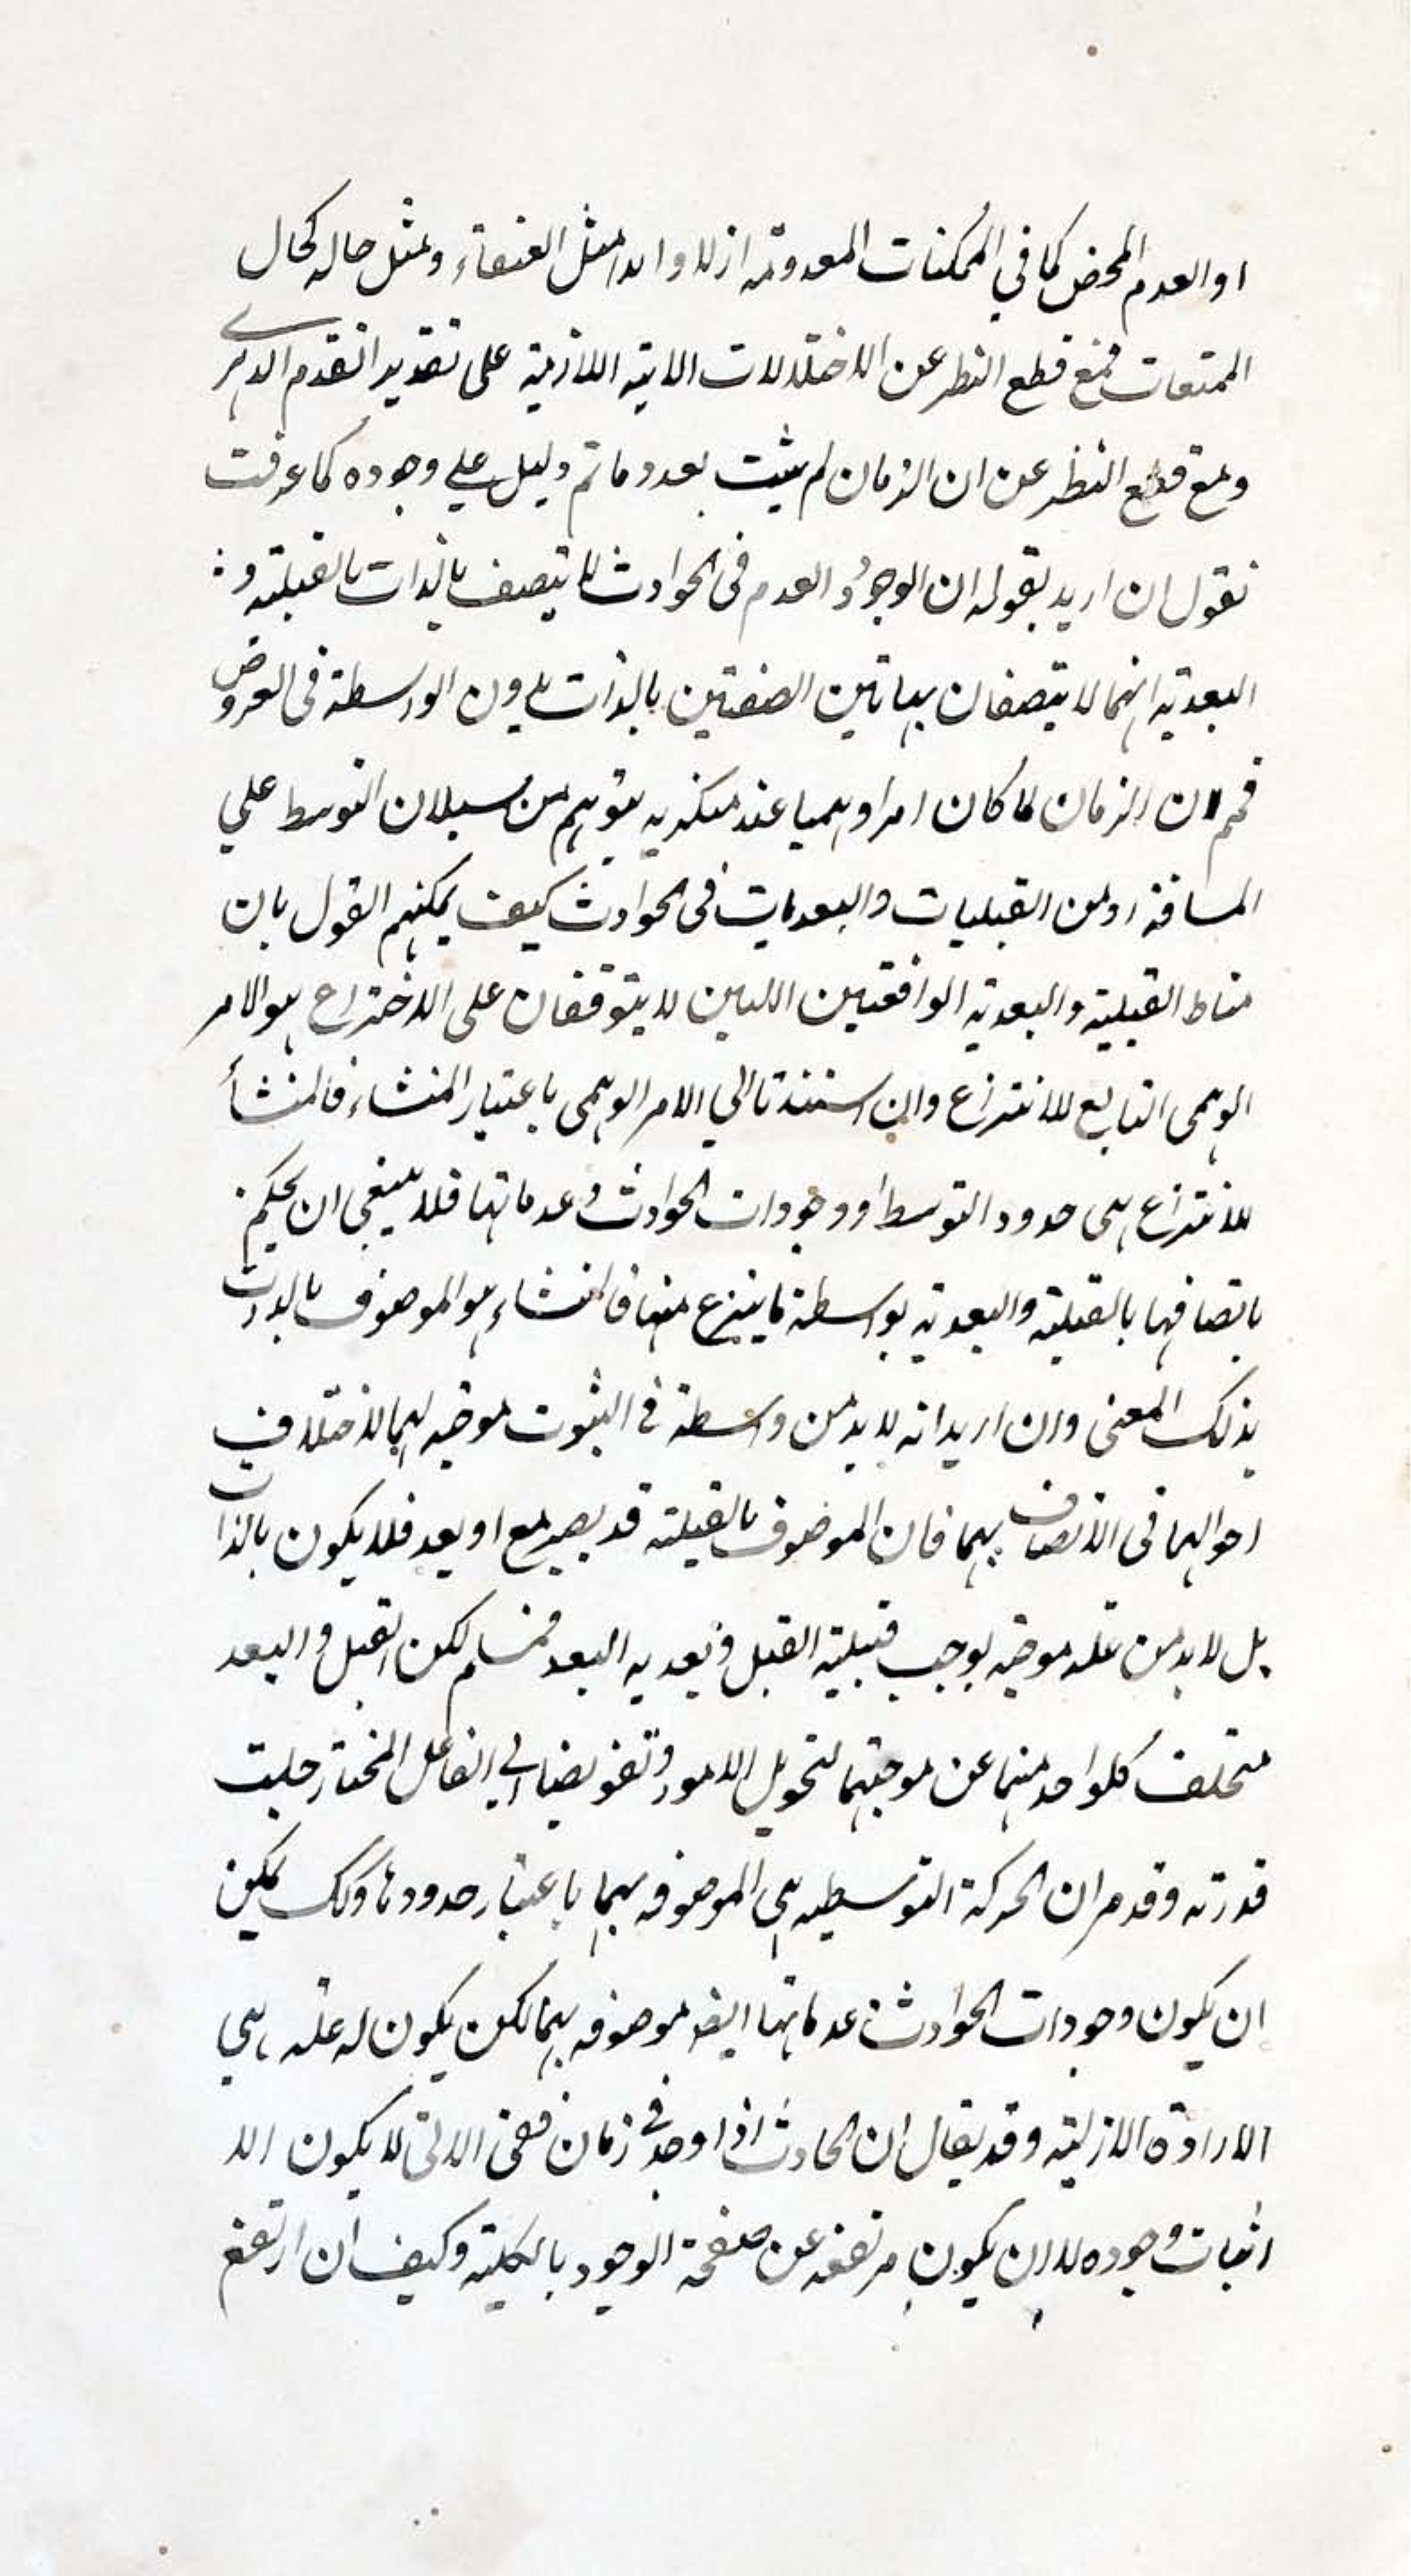 او العدم المحض كما في الممكنات المعدومة ازلا و ابدا مثل العنقاء ومثل حاله كحال
الممتنعات فمع قطع النظر عن الاختلالات الاتية اللازمة على تقدير التقدم الدهرى
ومع قطع النظر عن ان الزمان لم يثبت بعد وما تم دليل على وجوده كما عرفت
نقول ان اريد بقوله ان الوجود و العدم فى الحوادث لا يتصف بالذات بالقبلية و
البعدية انهما لا يتصفان بهاتين الصفتين بالذات بدون الواسطة فى العروض
فمم لان الزمان لما كان امرا وهميا عند منكريه يتوهم من سيلان التوسط على
المسافة او من القبليات و البعديات فى الحوادث كيف يمكنهم القول بان
مناط القبلية و البعدية الواقعتين اللتين لا يتوقفان على الاختراع هو الامر
الوهمى التابع للانتزاع وان استندتا الي الامر الوهمى باعتبار المنشاء فالمنشأ
للانتزاع هى حدود التوسط او وجودات الحوادث و عدماتها فلا ينبغى ان يحكم
باتصافها بالقبلية والبعدية بواسطة ما ينتزع منها فالمنشاء هو الموصوف بالذات
بذلك المعنى وان اريد انه لا بد من واسطة في الثبوت موجبة لهما لاختلاف
احوالهما فى الاتصاف بهما فان الموصوف بالقبلية قد يصير مع او بعد فلا يكون بالذات
بل لا بد من علة موجبة يوجب قبلية القبل و بعدية البعد فمسلم لكن القبل و البعد
متخلف كلواحد منهما عن موجبتهما لتحويل الامور و تفويضها الي الفاعل المختار جلت
قدرته وقد مر ان الحركة التوسطيه هي الموصوفه بهما باعتبار حدودها وكك يمكن
ان يكون وجودات الحوادث عدماتها ايضا موصوفه بهما لكن يكون له علة هي
الارادة الازلية وقد يقال ان الحادث اذا وجد في زمان ففى الاتى لا يكون الا
اثبات وجوده لا ان يكون مرتفعه عن صفحة الوجود بالكلية و كيف ان ارتفع